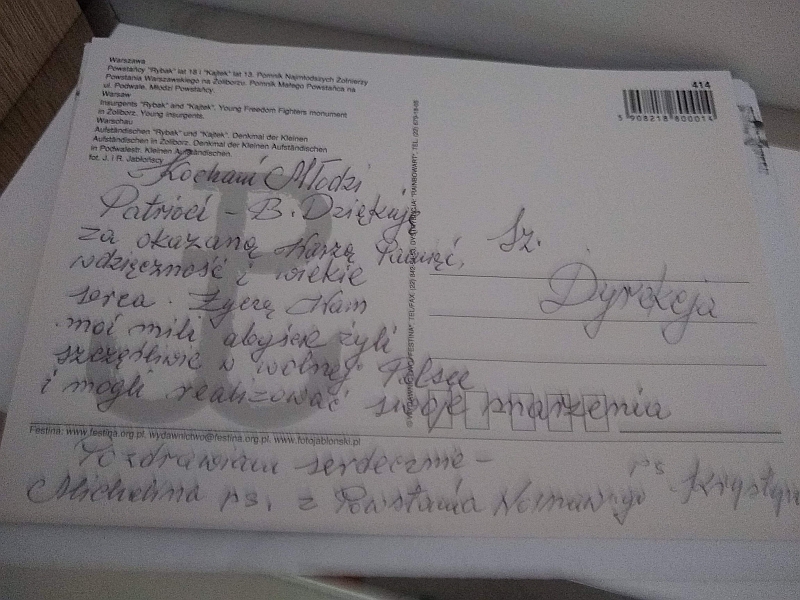 Warszawa
Powstańcy "Rybak" lat 18 i "Kajtek" lat 13. Pomnik Najmłodszych Żołnierzy
Powstania Warszawskiego na Żoliborzu. Pomnik Małego Powstańca na
ul. Podwale. Młodzi Powstańcy.
Warsaw
Insurgents "Rybak" and "Kajtek". Young Freedom Fighters monument
in Żoliborz. Young insurgents.
Warschau
Aufständischen "Rybak" und "Kajtek". Denkmal der Kleinen
Aufständischen in Żoliborz. Denkmal der Kleinen Aufständischen
in Podwalestr. Kleinen Aufständischen.
fot. J. i R. Jabłońscy
414
5 908218 800014
Kochani Młodzi
Patrioci - B. Dziękuję
za okazaną Waszą Pamięć,
wdzięczność i wielkie
serca. Życzę Wam
moi mili abyście żyli
szczęśliwie w wolnej Polsce
i mogli realizować swoje marzenia
Sz.
Dyrekcja
WYDAWNICTWO "FESTINA" TEL/FAX. (22) "RAINBOWART", TEL. (22) 679-18-05
Festina: www.festina.org.pl, wydawnictwo@festina.org.pl, www.fotojablonski.pl
Pozdrawiam serdecznie -
Michalina ps. z Powstania ps. Krystyn